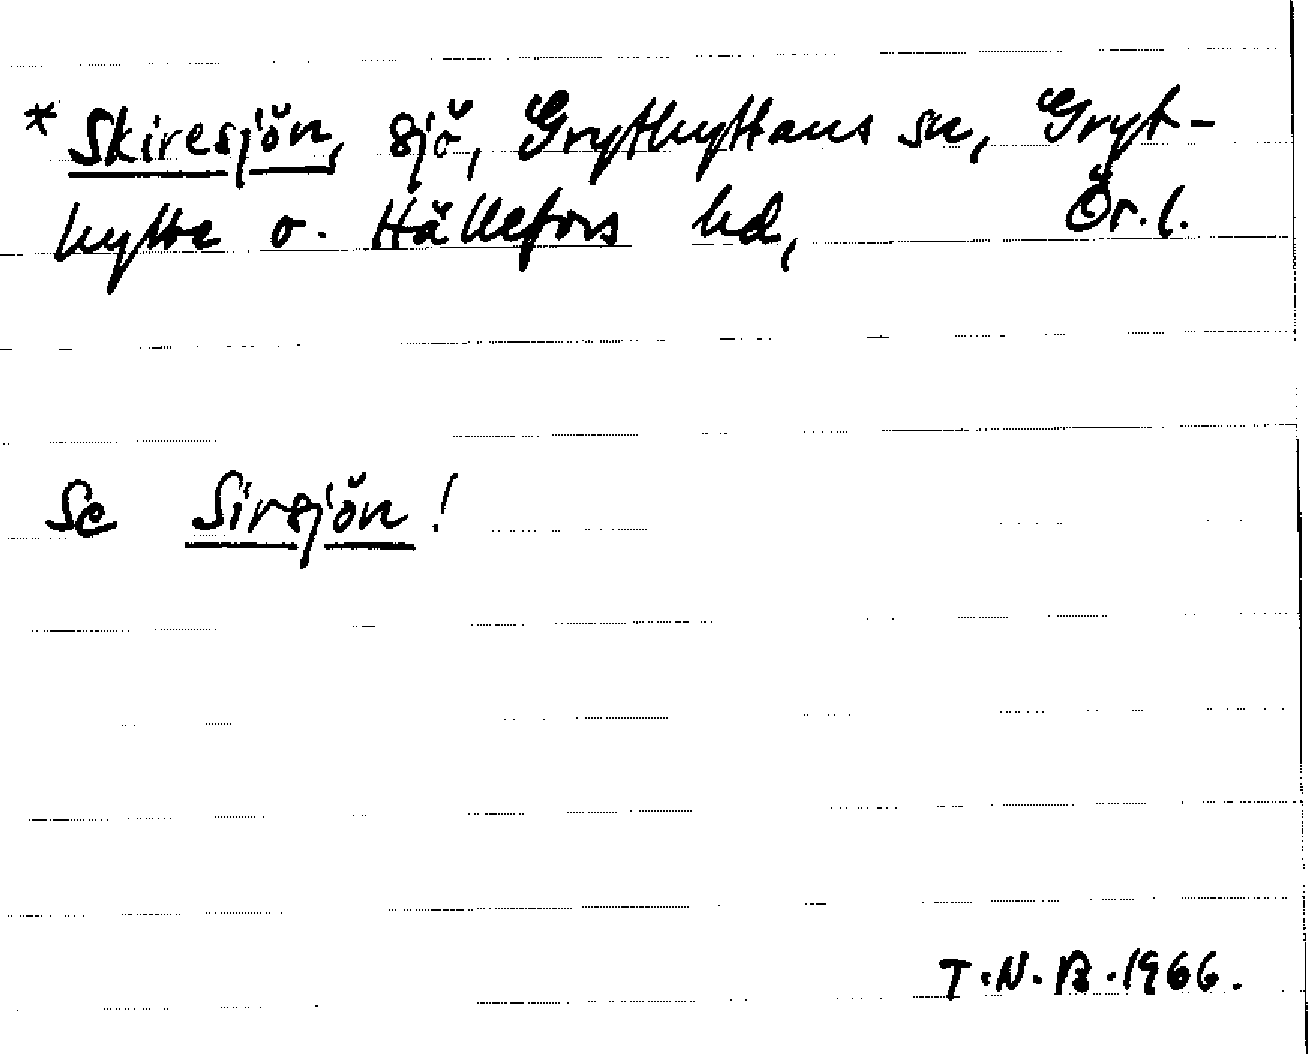 * Skiresjön, sjö, Grythyttans sn, Gryt-
hytte o. Hällefors hd, Ör.l.
Se Sirsjön!
T.N.B.1966.